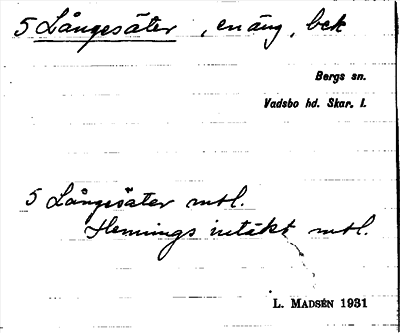 5 Långesäter, enäng, bek
Bergs sn.
Vadsbo hd. Skar. l.
5 Långesäter mtl.
Hemmings intäkt mtl.
L. MADSÉN 1931